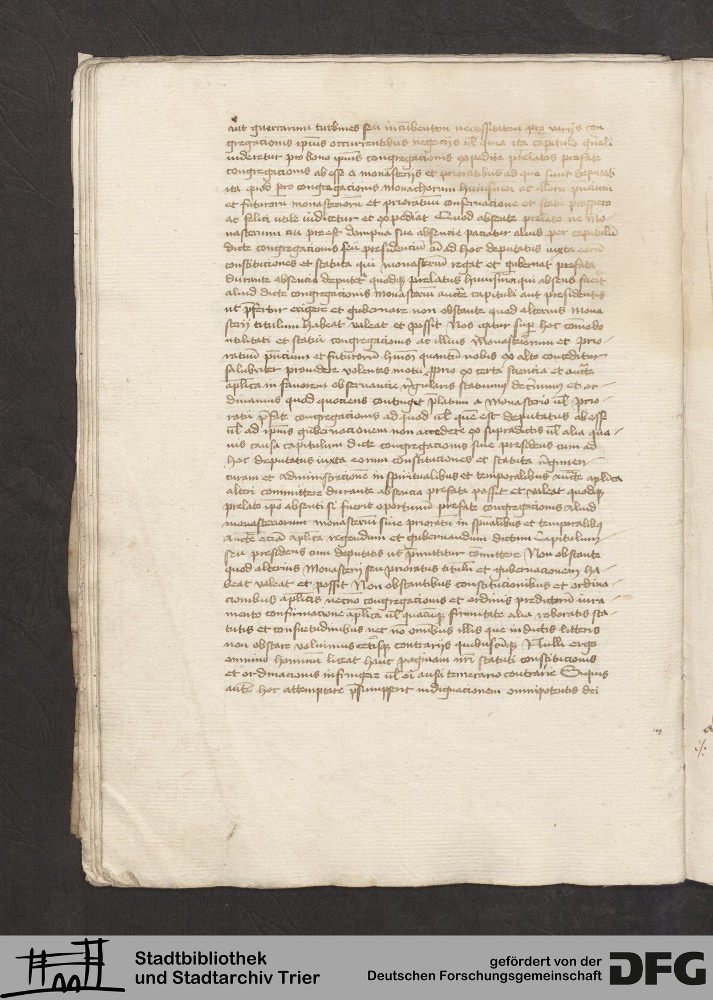 aut guerrarum turbines seu incumbentem necessitatem pro varijs con
gregacionis ipsius occurrentibus negocijs ul quia ita capitulo gnali
videretur pro bono ipsius congregacionis expedire prelatos prefate
congregacionis abesse a monasterijs et prioratibus ad que sunt deputati
ita quod pro congregacionis monachorum huiusmodi ac illorum
et futurorum monasteriorum et prioratuum conseruacione et statu prospero
ac felici utile iudicetur et expediat Quod absente prelato ne mo
nasterium cui preest dampna sue absencie paciatur alius per capitulum
dicte congregacionis seu presidencium cum ad hoc deputatis iuxta eorum
constituciones et statuta qui monasterium regat et gubernat prefata
durante absencia deputetur quodque prelatus huiusmodi qui absens fuerit
aliud dicte congregacionis monasterium aucte capituli aut presidentis
ut prfertur erigere et gubernare non obstante quod alterius mona
sterij titulum habeat valeat et possit Nos igitur super hoc comode
utilitati et statui congregacionis ac illius Monasteriorum et prio
ratuum pntium et futurorum hmoi quantum nobis ex alto conceditur
salubriter prouidere volentes motu pprio ex certa sciencia et aucte
aplica in fauorem obseruancie rigularis statuimus decernimus et or
dinamus quod quociens contingit prlatum a Monasterio ul prio
ratu prfate congregacionis ad quod ul que est deputatus abesse
ul ad ipsius gubernacionem non accedere ex supradictis ul alia qua
uis causa capitulum dicte congregacionis siue presidens cum ad
hoc deputatis iuxta eorum constituciones et statuta regimen
curam et administracione in spiritualibus et temporalibus aucte aplica
alteri committere durante absencia prefata possit et valeat quodque
prelato ipso absenti si fuerit oportunum prefate congregacionis aliud
monasteriorum monasterium siue prioratu in spualibus et temporalibus
aucte eciam aplica regendum et gubernandum dictum Capitulum
seu presidens cum deputatis ut premittitur comittere Non obstante
quod alterius Monasterij seu prioratus tituli et gubernacionem ha
beat valeat et possit Non obstantibus constitucionibus et ordina
cionibus aplicis necno congregacionis et ordinis predictorum iura
mento confirmacione aplica ul quacumque firmitate alia roboratis sta
tutis et consuetudinibus nec no omibus illis que in dictis litteris
non obstare volumus ceterisque contrarijs quibuscumque Nulli ergo
omnino hominum liceat hanc paginam nri statuti constitucionis
et ordinacionis infringere ul ei ausu temerario contraire Siquis
autem hoc attemptare presumpserit indignacionem omnipotentis dei
Stadtbibliothek
und Stadtarchiv Trier
gefördert von der
Deutschen Forschungsgemeinschaft
DFG